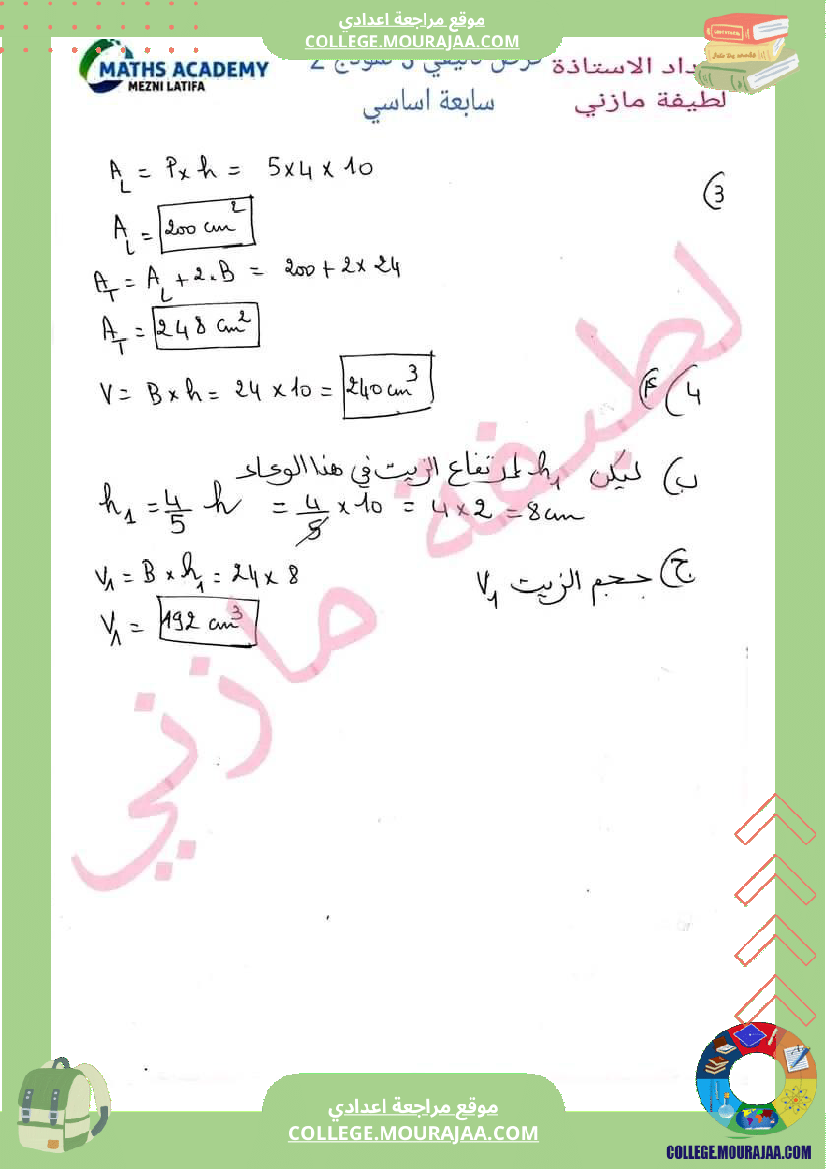 موقع مراجعة اعدادي
COLLEGE.MOURAJAA.COM
MATHS ACADEMY
MEZNI LATIFA
الاستاذة
لطيفة مازني
سابعة اساسي
3)
A_L = P × h = 5 × 4 × 10
A_L = 200 cm²
A_T = A_L + 2 . B = 200 + 2 × 24
A_T = 248 cm²
4) أ) V = B × h = 24 × 10 = 240 cm³
ب) ليكن h₁ ارتفاع الزيت في هذا الوعاء
h₁ = 4/5 h = 4/5 × 10 = 4 × 2 = 8 cm
ج) حجم الزيت V₁
V₁ = B × h₁ = 24 × 8
V₁ = 192 cm³
لطيفة مازني
موقع مراجعة اعدادي
COLLEGE.MOURAJAA.COM
COLLEGE.MOURAJAA.COM